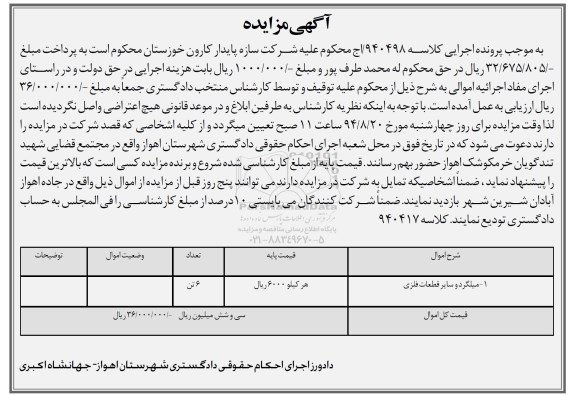 آگهی مزایده
به موجب پرونده اجرایی کلاسه ۹۴۰۴۹۸/اج محکوم علیه شرکت سازه پایدار کارون خوزستان محکوم است به پرداخت مبلغ
۳۲/۶۷۵/۸۰۵/- ریال در حق محکوم له محمد طرف پور و مبلغ ۱۰۰۰/۰۰۰/- ریال بابت هزینه اجرایی در حق دولت و در راستای
اجرای مفاد اجرائیه اموالی به شرح ذیل از محکوم علیه توقیف و توسط کارشناس منتخب دادگستری جمعاً به مبلغ ۳۶/۰۰۰/۰۰۰/-
ریال ارزیابی به عمل آمده است. با توجه به اینکه نظریه کارشناس به طرفین ابلاغ و در موعد قانونی هیچ اعتراضی واصل نگردیده است
لذا وقت مزایده برای روز چهارشنبه مورخ ۹۴/۸/۲۰ ساعت ۱۱ صبح تعیین میگردد و از کلیه اشخاصی که قصد شرکت در مزایده را
دارند دعوت می شود که در تاریخ فوق در محل شعبه اجرای احکام حقوقی دادگستری شهرستان اهواز واقع در مجتمع قضایی شهید
تندگویان خرمکوشک اهواز حضور بهم رسانند. قیمت پایه از مبلغ کارشناسی شده شروع و برنده مزایده کسی است که بالاترین قیمت
را پیشنهاد نماید، ضمناً اشخاصیکه تمایل به شرکت در مزایده دارند می توانند پنج روز قبل از مزایده از اموال ذیل واقع در جاده اهواز
آبادان شیرین شهر بازدید نمایند. ضمناً شرکت کنندگان می بایستی ۱۰ درصد از مبلغ کارشناسی را فی المجلس به حساب
دادگستری تودیع نمایند. کلاسه ۹۴۰۴۱۷
پایگاه اطلاع رسانی مناقصه و مزایده
۰۲۱-۸۸۳۴۹۶۷۰-۵
شرح اموال قیمت پایه تعداد وضعیت اموال توضیحات
۱- میلگرد و سایر قطعات فلزی هر کیلو ۶۰۰۰ ریال ۶ تن
قیمت کل اموال سی و شش میلیون ریال ۳۶/۰۰۰/۰۰۰/- ریال
دادورز اجرای احکام حقوقی دادگستری شهرستان اهواز- جهانشاه اکبری